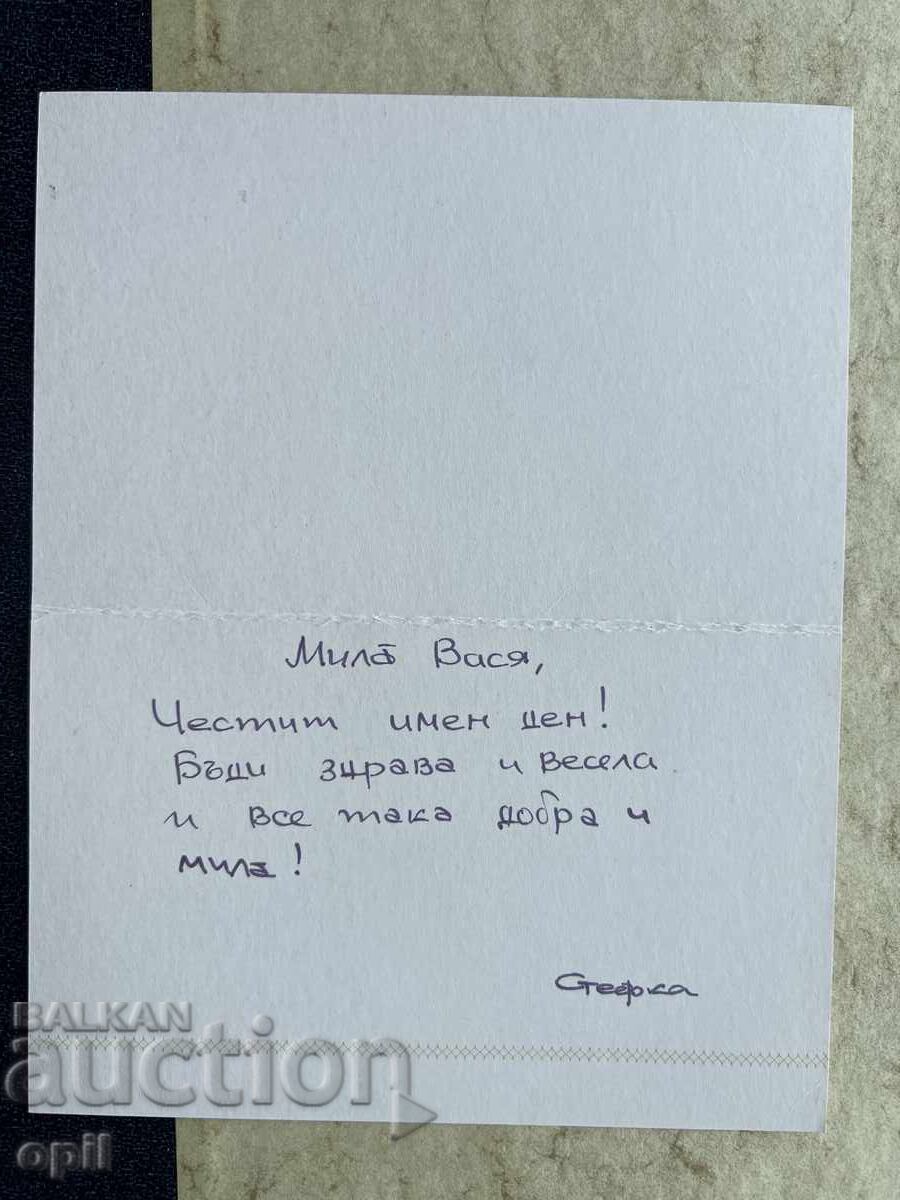 Мила Вася,
Честит имен ден!
Бъди здрава и весела
и все така добра и
мила!
Стефка
BALKAN
auction
opil